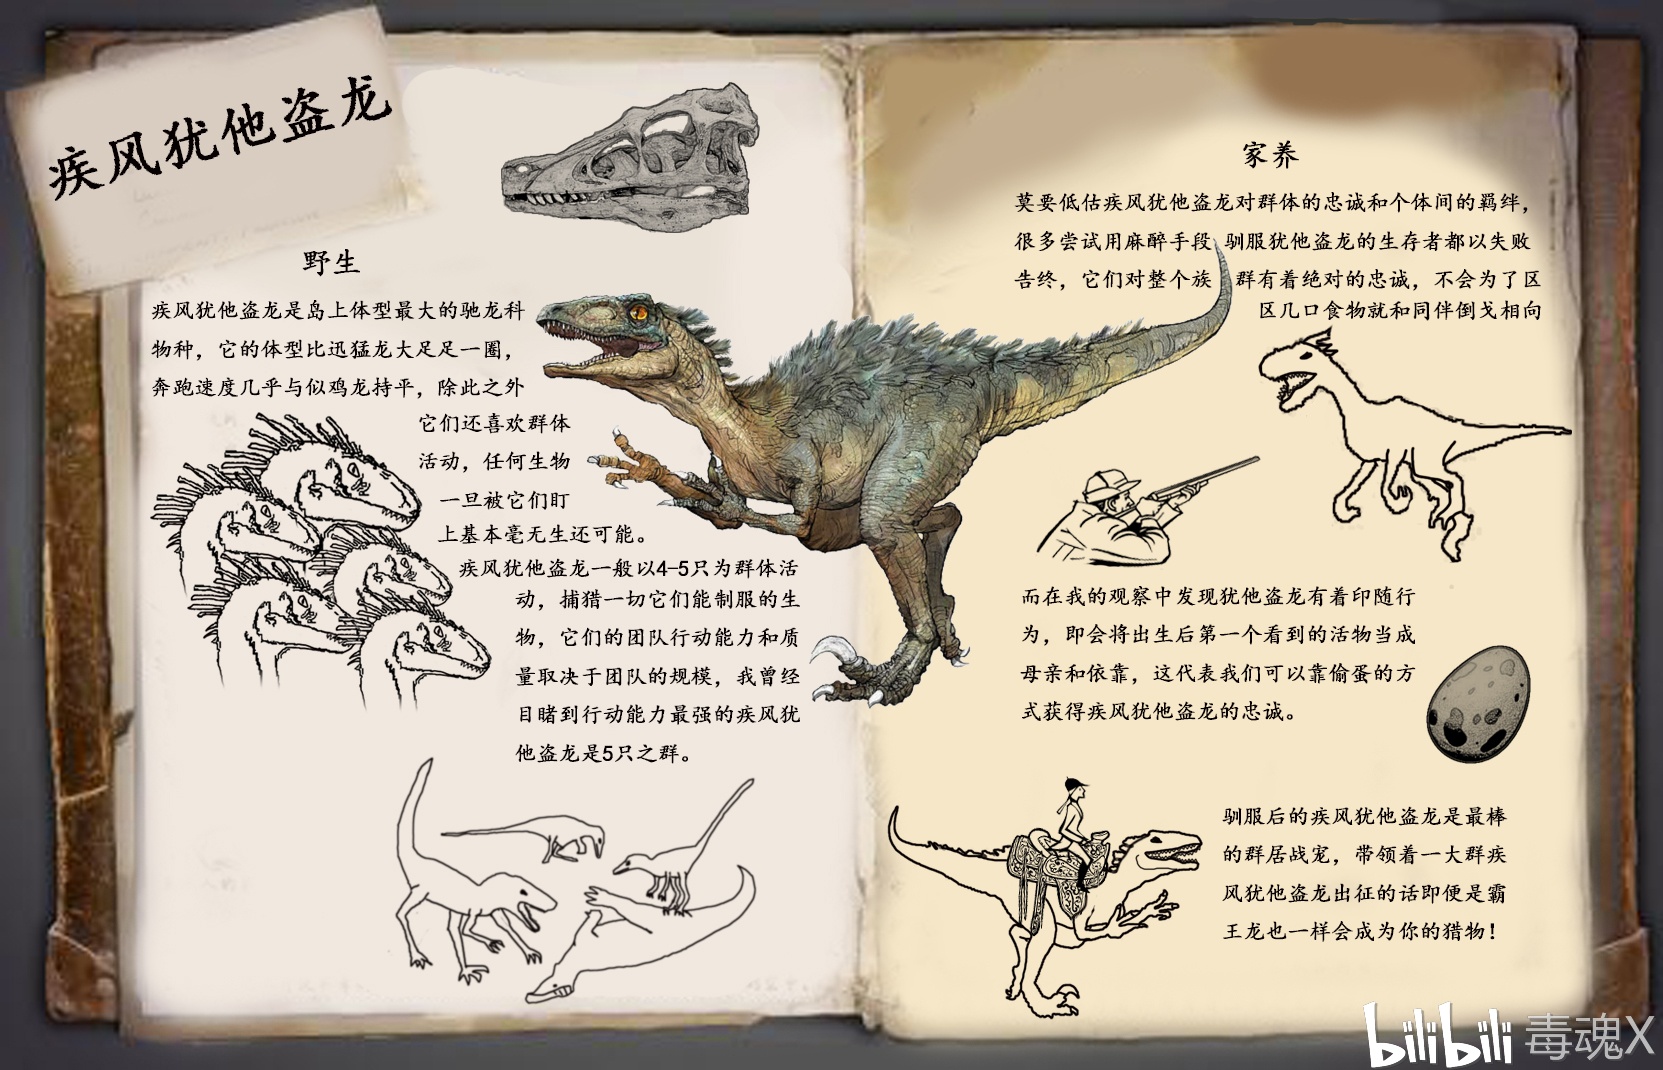 疾风犹他盗龙
野生
疾风犹他盗龙是岛上体型最大的驰龙科
物种，它的体型比迅猛龙大足足一圈，
奔跑速度几乎与似鸡龙持平，除此之外
它们还喜欢群体
活动，任何生物
一旦被它们盯
上基本毫无生还可能。
疾风犹他盗龙一般以4-5只为群体活
动，捕猎一切它们能制服的生
物，它们的团队行动能力和质
量取决于团队的规模，我曾经
目睹到行动能力最强的疾风犹
他盗龙是5只之群。
家养
莫要低估疾风犹他盗龙对群体的忠诚和个体间的羁绊，
很多尝试用麻醉手段 驯服犹他盗龙的生存者都以失败
告终，它们对整个族 群有着绝对的忠诚，不会为了区
区几口食物就和同伴倒戈相向
而在我的观察中发现犹他盗龙有着印随行
为，即会将出生后第一个看到的活物当成
母亲和依靠，这代表我们可以靠偷蛋的方
式获得疾风犹他盗龙的忠诚。
驯服后的疾风犹他盗龙是最棒
的群居战宠，带领着一大群疾
风犹他盗龙出征的话即便是霸
王龙也一样会成为你的猎物！
bilibili 毒魂X